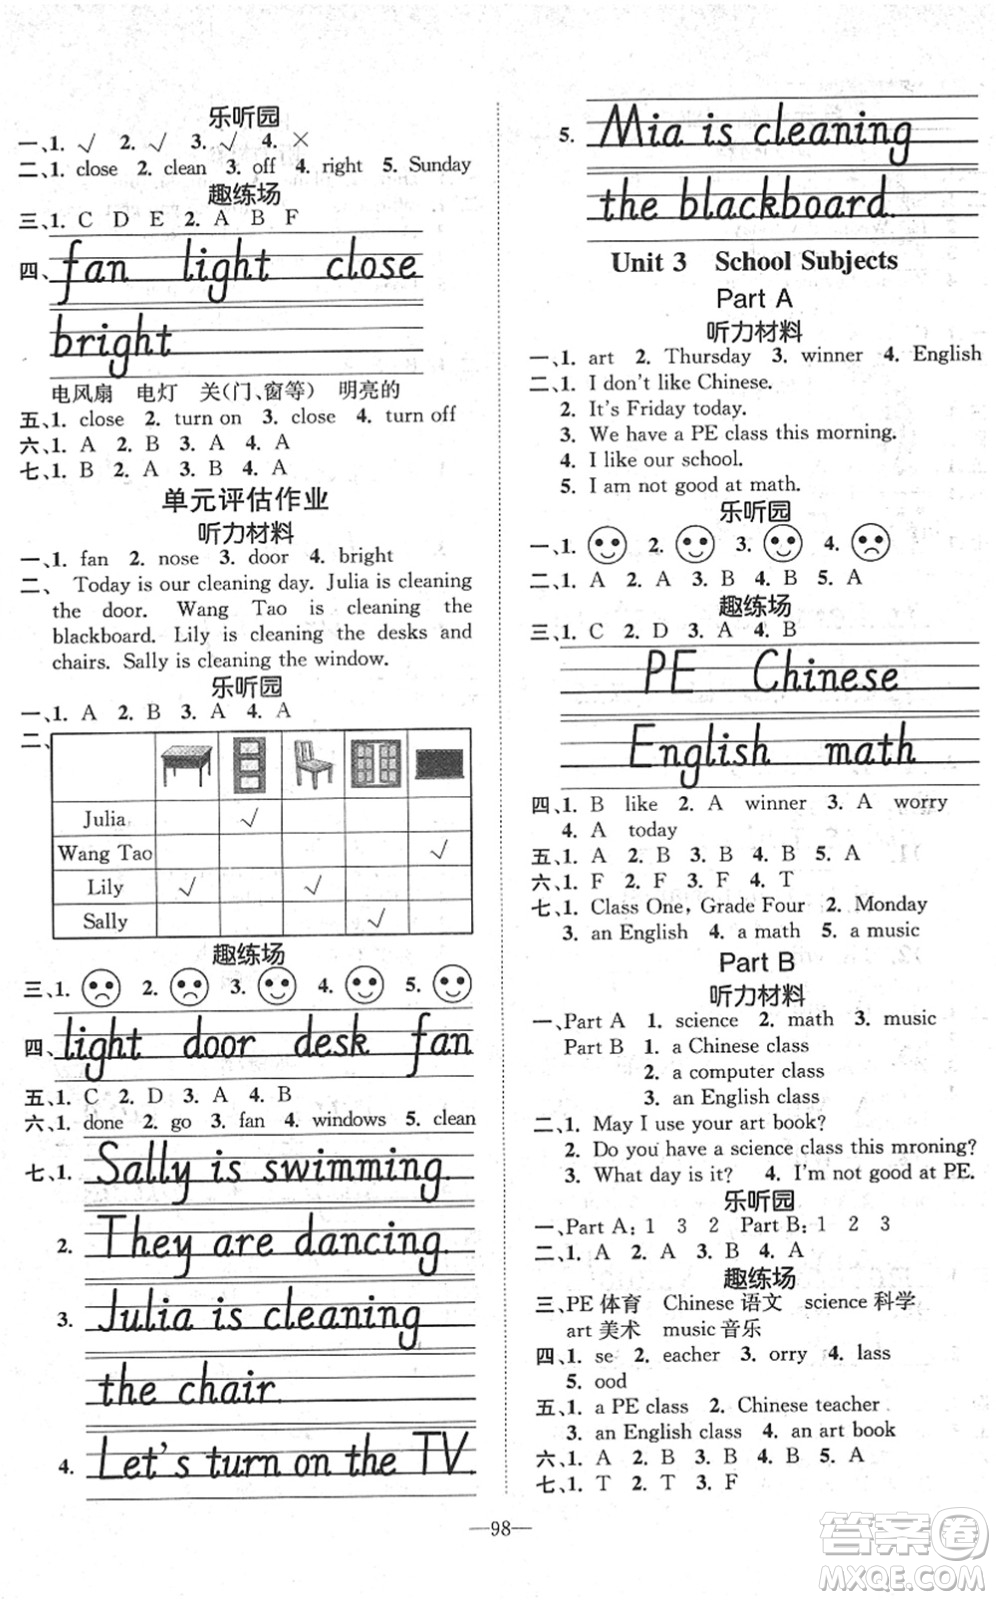 乐听园
一、1. √ 2. √ 3. √ 4. ×
二、1. close 2. clean 3. off 4. right 5. Sunday
趣练场
三、1. C D E 2. A B F
四、 fan light close
bright
电风扇 电灯 关(门、窗等) 明亮的
五、1. close 2. turn on 3. close 4. turn off
六、1. A 2. B 3. A 4. A
七、1. B 2. A 3. B 4. A
单元评估作业
听力材料
一、1. fan 2. nose 3. door 4. bright
二、 Today is our cleaning day. Julia is cleaning
the door. Wang Tao is cleaning the
blackboard. Lily is cleaning the desks and
chairs. Sally is cleaning the window.
乐听园
一、1. A 2. B 3. A 4. A
二、
Julia √
Wang Tao √
Lily √ √
Sally √
趣练场
三、1. 2. 3. 4. 5.
四、 light door desk fan
五、1. C 2. D 3. A 4. B
六、1. done 2. go 3. fan 4. windows 5. clean
七、1. Sally is swimming.
2. They are dancing.
3. Julia is cleaning
the chair.
4. Let's turn on the TV.
5. Mia is cleaning
the blackboard.
Unit 3 School Subjects
Part A
听力材料
一、1. art 2. Thursday 3. winner 4. English
二、1. I don't like Chinese.
2. It's Friday today.
3. We have a PE class this morning.
4. I like our school.
5. I am not good at math.
乐听园
一、1. 2. 3. 4.
二、1. A 2. A 3. B 4. B 5. A
趣练场
三、1. C 2. D 3. A 4. B
PE Chinese
English math
四、1. B like 2. A winner 3. A worry
4. A today
五、1. A 2. B 3. B 4. B 5. A
六、1. F 2. F 3. F 4. T
七、1. Class One, Grade Four 2. Monday
3. an English 4. a math 5. a music
Part B
听力材料
一、Part A 1. science 2. math 3. music
Part B 1. a Chinese class
2. a computer class
3. an English class
二、1. May I use your art book?
2. Do you have a science class this mroning?
3. What day is it? 4. I'm not good at PE.
乐听园
一、Part A: 1 3 2 Part B: 1 2 3
二、1. A 2. A 3. B 4. A
趣练场
三、PE 体育 Chinese 语文 science 科学
art 美术 music 音乐
四、1. se 2. eacher 3. orry 4. lass
5. ood
五、1. a PE class 2. Chinese teacher
3. an English class 4. an art book
六、1. A 2. B 3. B 4. B 5. A
七、1. T 2. T 3. F
—98—
答案圈
MXQE.COM